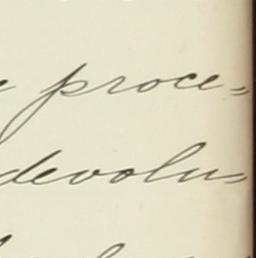 proce=
devolu=